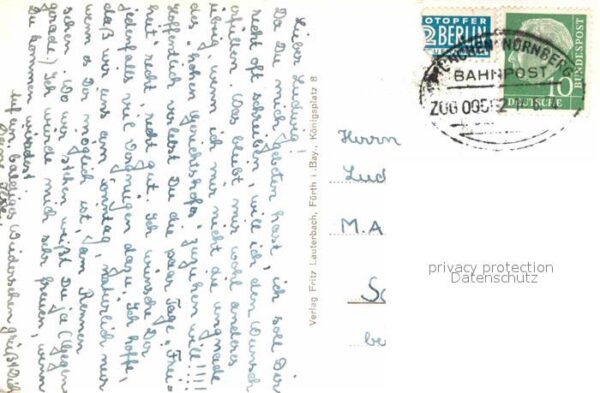 Lieber Ludwig!
Da Du mich gebeten hast, ich soll Dir
recht oft schreiben, will ich den Wunsch
erfüllen. (Was bleibt mir wohl anderes
übrig, wenn ich mir nicht die ungnade
des "hohen Gerichtshofes" zuziehen will!!!!
Hoffentlich verlebst Du die paar Tage "Frei-
heit" recht recht gut. Ich wünsche Dir
jedenfalls viel Vergnügen dazu. Ich hoffe,
daß wir uns am Sonntag, natürlich nur
wenn es Dir möglich ist, am Rennen
sehen. Wo wir stehen weißt Du ja (Gegen-
gerade) Ich würde mich sehr freuen, wenn
Du kommen würdest
Auf ein baldiges Wiedersehen grüßt Dich
Verlag Fritz Lauterbach, Fürth i. Bay., Königsplatz 8
OTOPFER
2 BERLIN
MÜNCHEN-NÜRNBERG
BAHNPOST
ZUG 095
10
DEUTSCHE
BUNDESPOST
Herrn
Lud
M. A
S
be
privacy protection
Datenschutz